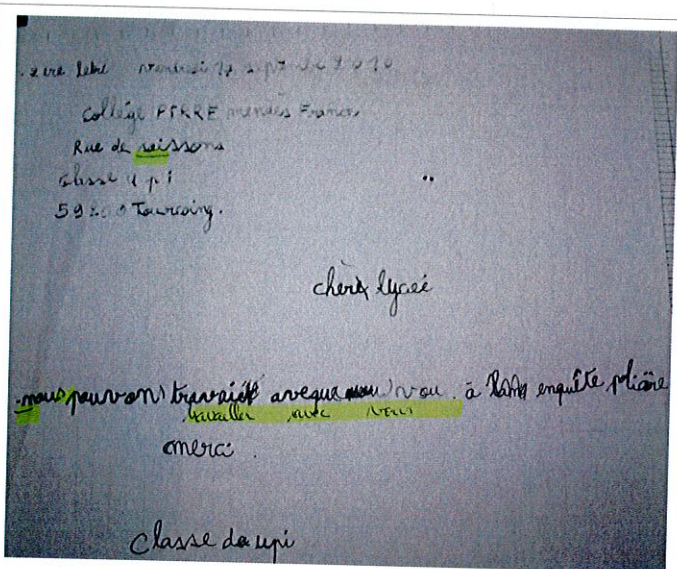 vendredi 17 sept 2010
Collége PIERRE mendès France
Rue de soissons
classe upi
59200 Tourcoing.
chère lyceé
nous pouvons travaiĺé avegue vou à enquête poliäre
travailler avec vous
merci.
Classe da upi